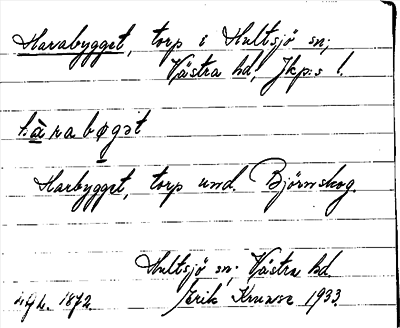 Harabygget, torp i Hultsjö sn;
Västra hd, Jkp:s l.
hàrabøgət
Harbygget, torp und. Björnskog.
Hultsjö sn; Västra hd
1872. Erik Kruuse 1933.